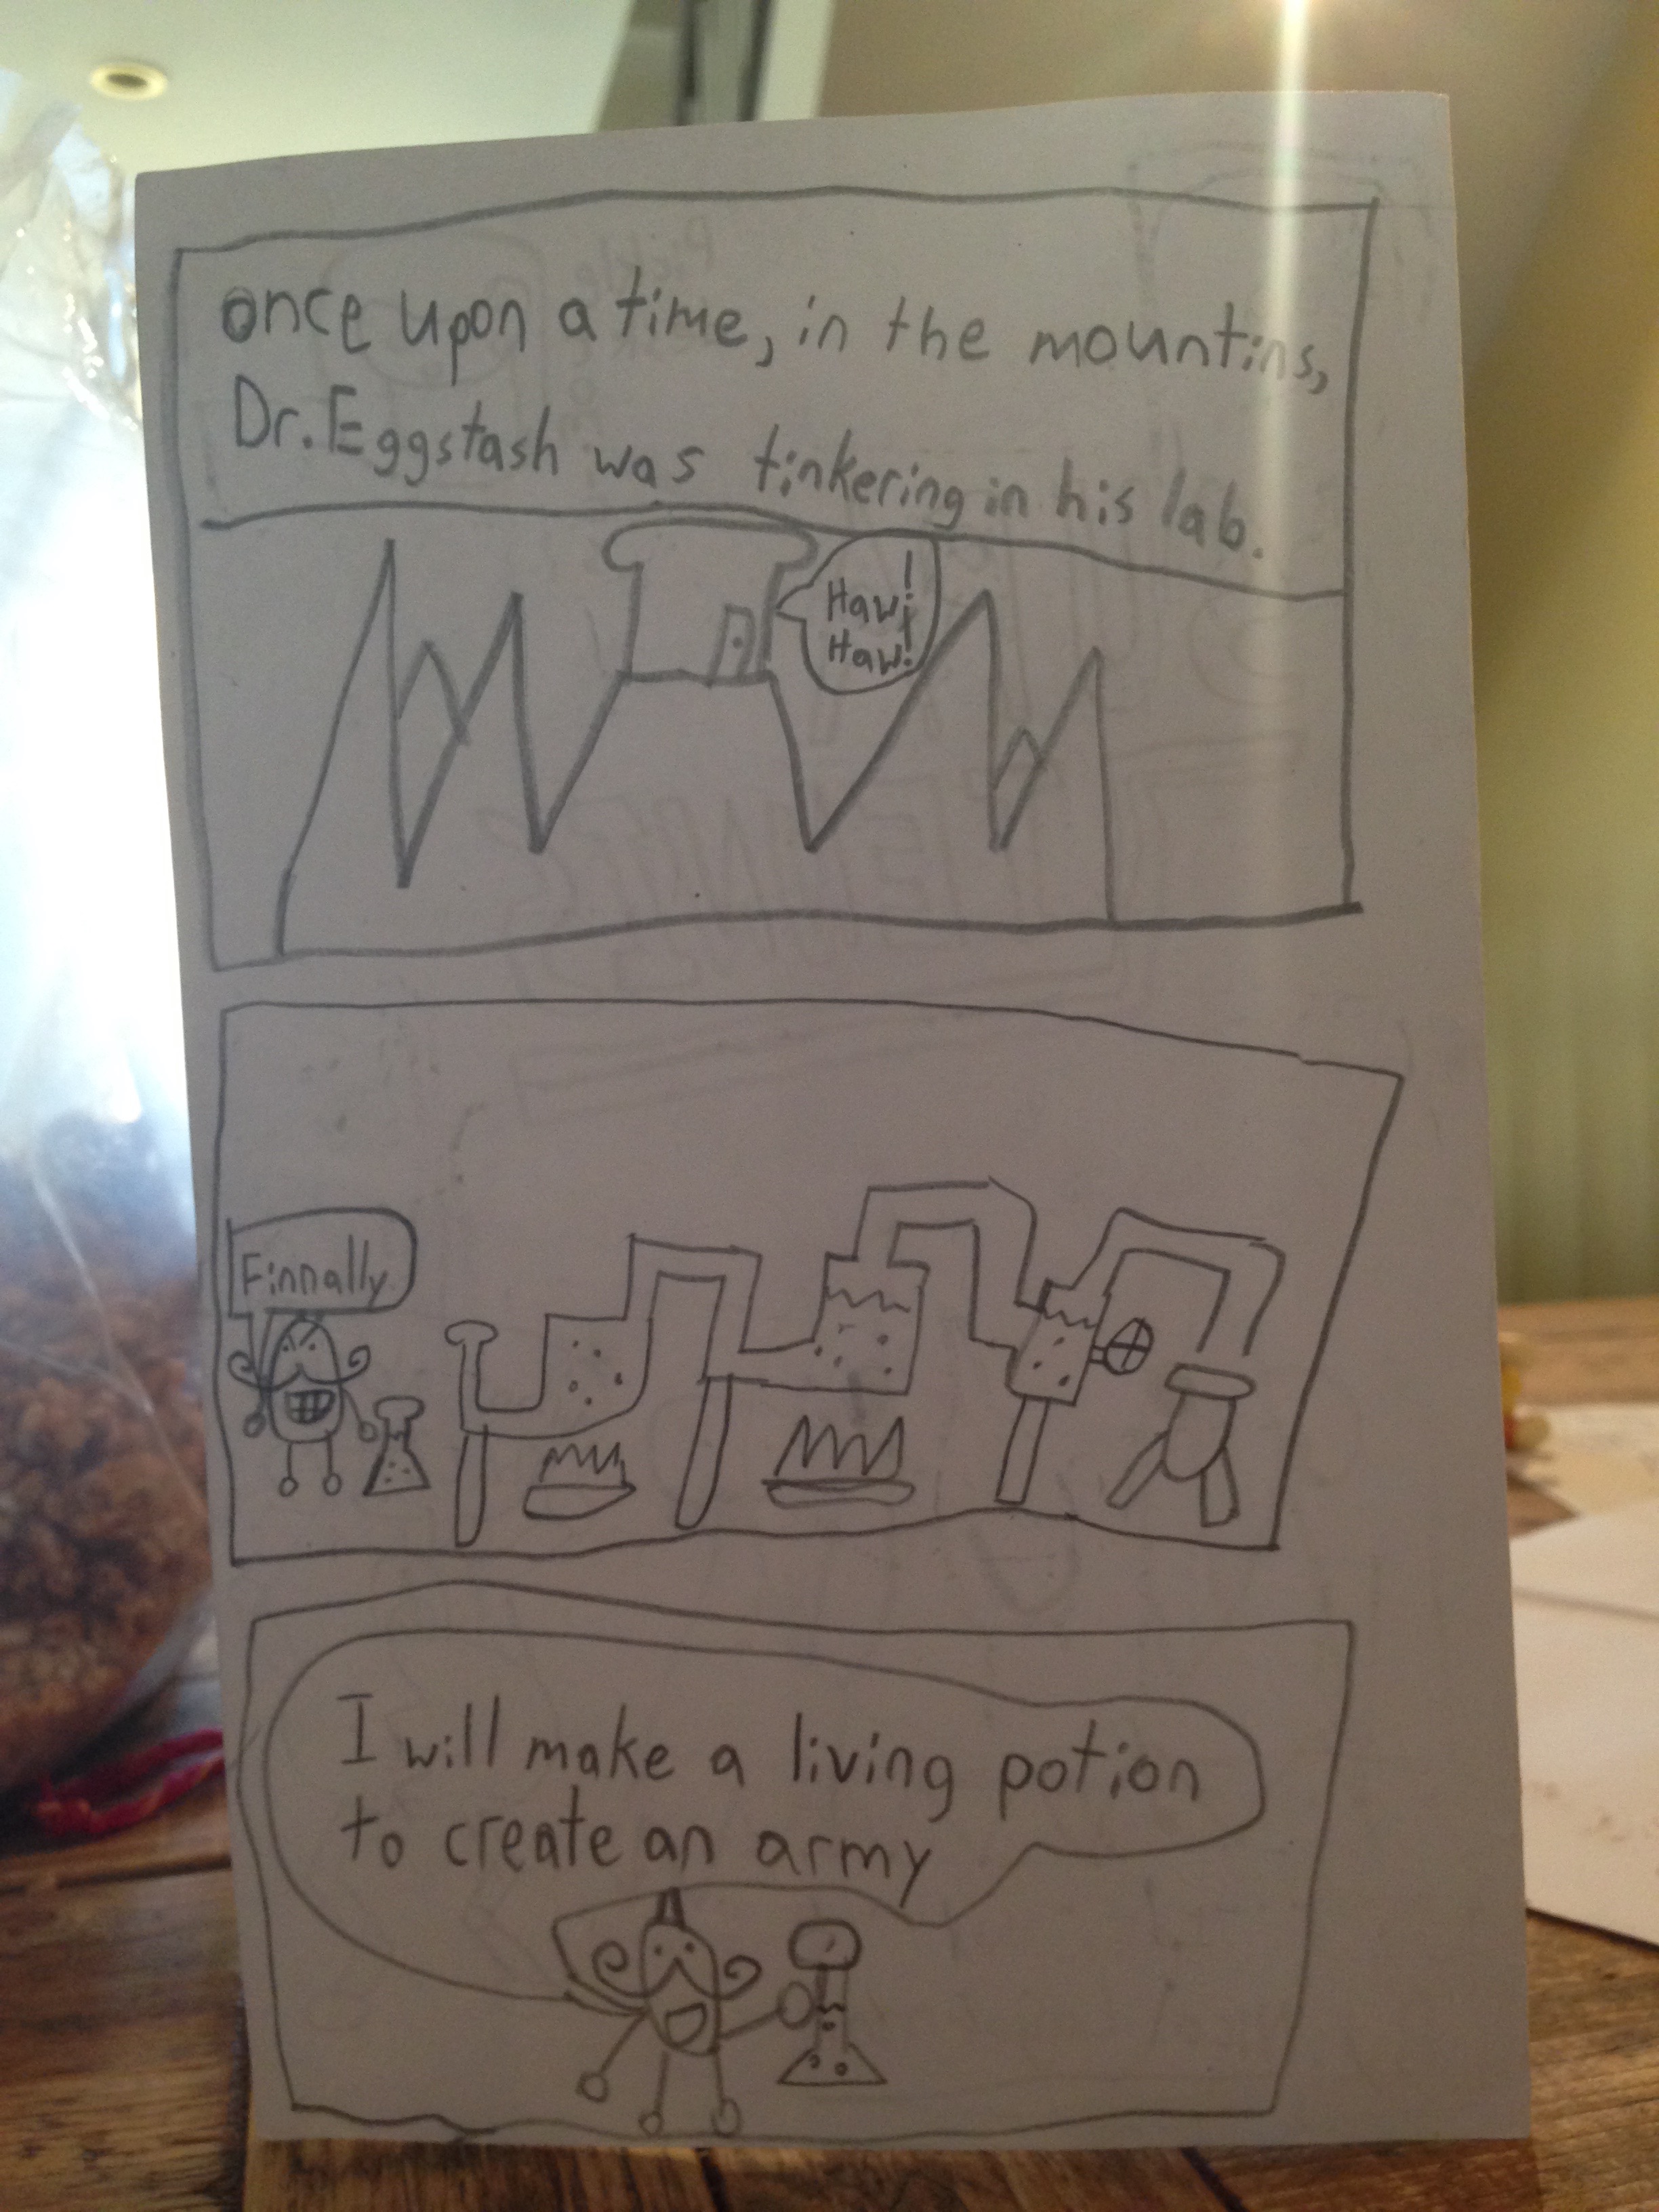 once upon a time, in the mountins,
Dr. Eggstash was tinkering in his lab.
Haw!
Haw!
Finnally
I will make a living potion
to create an army